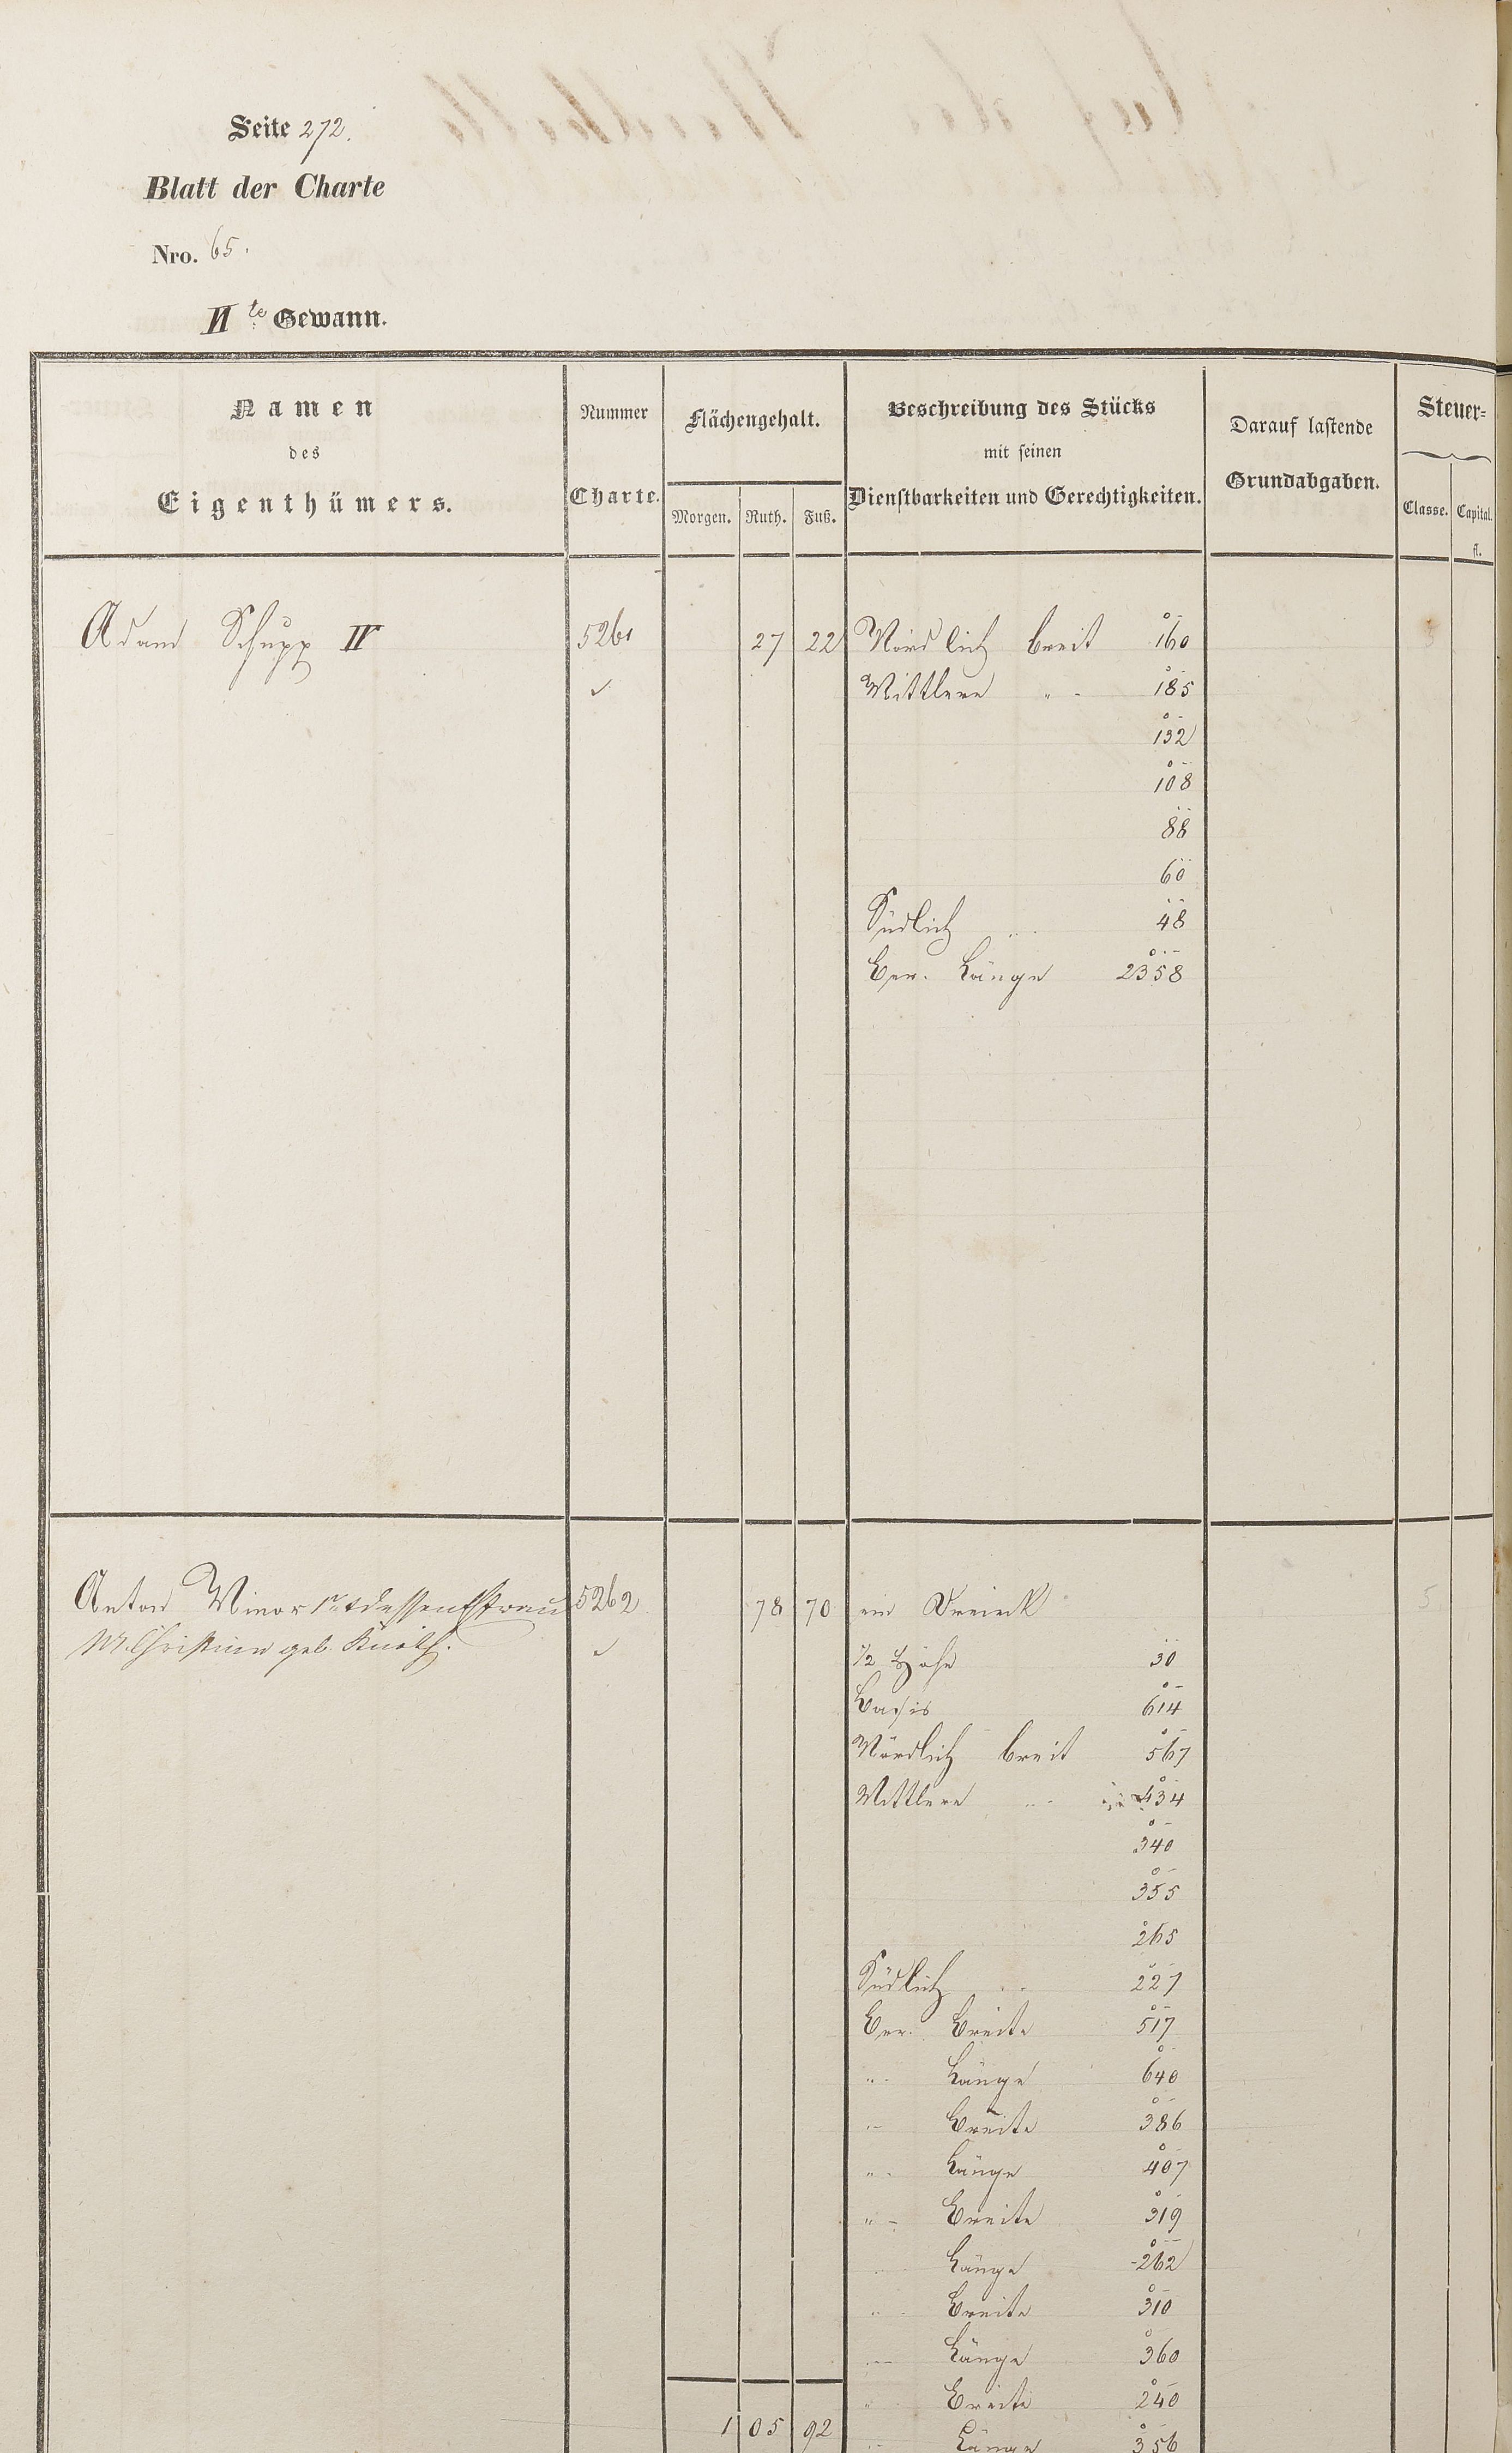 Seite 272.
Blatt der Charte
Nro. 65.
II te Gewann.
Namen
des
Eigenthümers.
Nummer
Charte.
Flächengehalt.
Morgen. Ruth. Fuß.
Beschreibung des Stücks
mit seinen
Dienstbarkeiten und Gerechtigkeiten.
Darauf lastende
Grundabgaben.
Steuer=
Classe. Capital.
fl.
Adam Schupp IV 5261 27 22 Nördlich breit 160
Mittlere " 185
132
108
88
60
Südlich " 48
Ger. Länge 2358
Anton Minor 1r & dessen Ehefrau 5262 78 70 ein Dreieck
M. Christina geb. Knoth.
1/2 Höhe 30
Basis 614
Nördlich breit 567
Mittlere " 434
340
355
265
Südlich " 227
Ger. Breite 517
" Länge 640
" Breite 386
" Länge 407
" Breite 319
" Länge 262
" Breite 310
" Länge 360
" Breite 240
1 05 92 " Länge 356